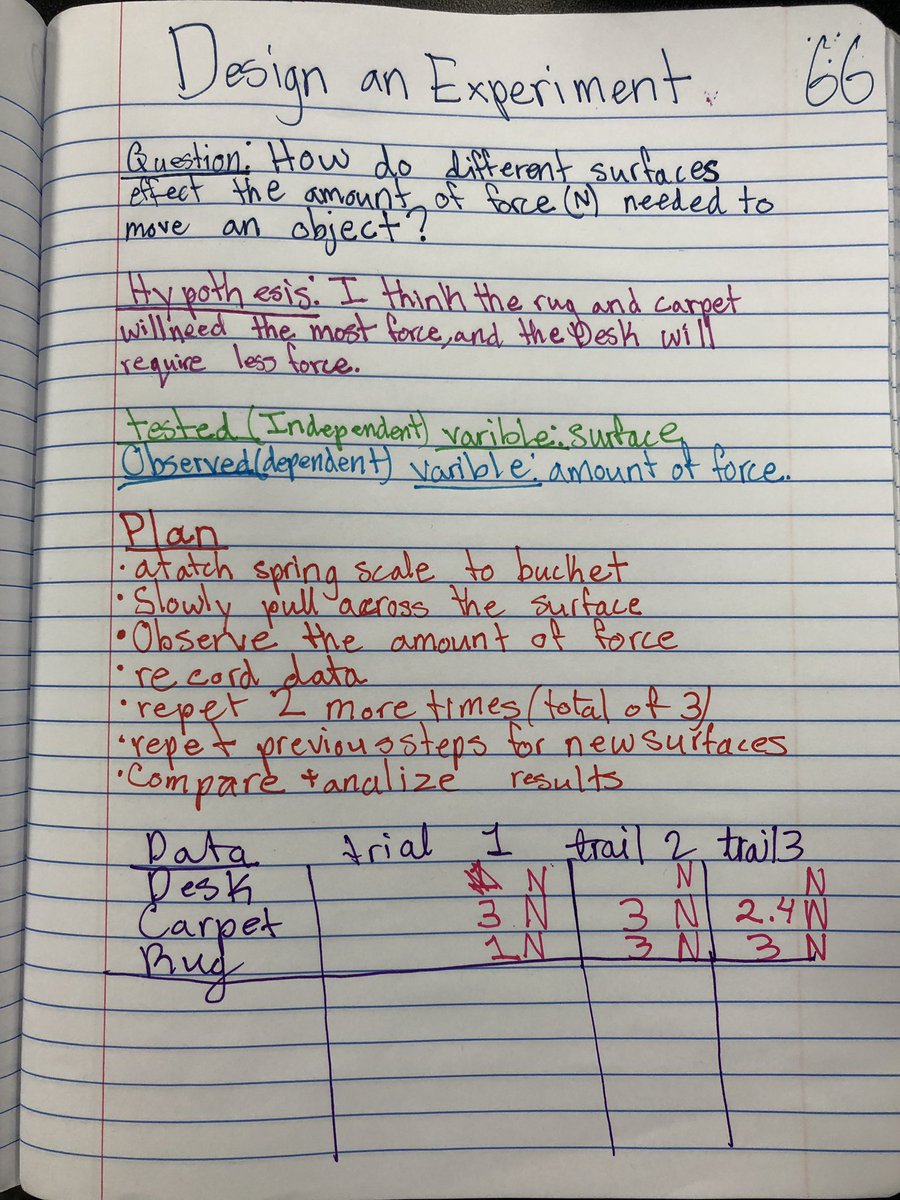 Design an Experiment 66
Question: How do different surfaces
effect the amount of force (N) needed to
move an object?
Hypothesis: I think the rug and carpet
will need the most force, and the Desk will
require less force.
tested (Independent) varible: surface
Observed (dependent) varible: amount of force.
Plan
• atatch spring scale to bucket
• Slowly pull across the surface
• Observe the amount of force
• record data
• repet 2 more times (total of 3)
• repet previous steps for new surfaces
• Compare + analize results
Data trial 1 trail 2 trail 3
Desk N N N
Carpet 3 N 3 N 2.4 N
Rug 1 N 3 N 3 N